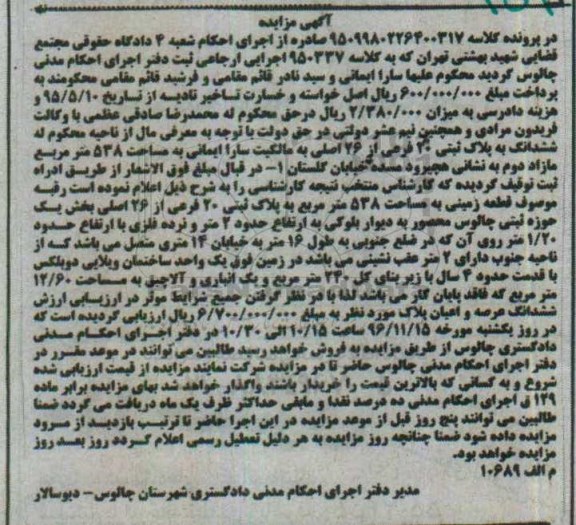 آگهی مزایده
در پرونده کلاسه ۹۵۰۹۹۸۰۲۲۶۴۰۰۳۱۷ صادره از اجرای احکام شعبه ۴ دادگاه حقوقی مجتمع
قضایی شهید بهشتی تهران که به کلاسه ۹۵۰۳۳۷ اجرایی ارجاعی ثبت دفتر اجرای احکام مدنی
چالوس گردید محکوم علیها سارا ایمانی و سید نادر قائم مقامی و فرشید قائم مقامی محکومند به
پرداخت مبلغ ۶۰۰/۰۰۰/۰۰۰ ریال اصل خواسته و خسارت تاخیر تادیه از تاریخ ۹۵/۵/۱۰ و
هزینه دادرسی به میزان ۲/۳۸۰/۰۰۰ ریال درحق محکوم له محمدرضا صادقی عظمی با وکالت
فریدون مرادی و همچنین نیم عشر دولتی در حق دولت با توجه به معرفی مال از ناحیه محکوم له
ششدانگ به پلاک ثبتی ۲۰ فرعی از ۲۶ اصلی به مالکیت سارا ایمانی به مساحت ۵۳۸ متر مربع
مازاد دوم به نشانی هچیرود مسده خیابان گلستان ۱- در قبال مبلغ فوق الاشعار از طریق اداره
ثبت توقیف گردیده که کارشناس منتخب نتیجه کارشناسی را به شرح ذیل اعلام نموده است رقبه
موصوف قطعه زمینی به مساحت ۵۳۸ متر مربع به پلاک ثبتی ۲۰ فرعی از ۲۶ اصلی بخش یک
حوزه ثبتی چالوس محصور به دیوار بلوکی به ارتفاع حدود ۲ متر و نرده فلزی با ارتفاع حدود
۱/۲۰ متر روی آن که در ضلع جنوبی به طول ۱۶ متر به خیابان ۱۴ متری متصل می باشد که از
ناحیه جنوب دارای ۲ متر عقب نشینی می باشد در زمین فوق یک واحد ساختمان ویلایی دوبلکس
با قدمت حدود ۴ سال با زیر بنای کل ۲۴۰ متر مربع و یک انباری و آلاچیق به مساحت ۱۲/۶۰
متر مربع که فاقد پایان کار می باشد لذا با در نظر گرفتن جمیع شرایط موثر در ارزیابی ارزش
ششدانگ عرصه و اعیان پلاک مورد نظر به مبلغ ۶/۷۰۰/۰۰۰/۰۰۰ ریال ارزیابی گردیده است که
در روز یکشنبه مورخه ۹۶/۱۱/۱۵ ساعت ۱۰/۱۵ الی ۱۰/۳۰ در دفتر اجرای احکام مدنی
دادگستری چالوس از طریق مزایده به فروش خواهد رسید طالبین می توانند در موعد مقرر در
دفتر اجرای احکام مدنی چالوس حاضر تا در مزایده شرکت نمایند مزایده از قیمت ارزیابی شده
شروع و به کسانی که بالاترین قیمت را خریدار باشند واگذار خواهد شد بهای مزایده برابر ماده
۱۲۹ ق اجرای احکام مدنی ده درصد نقدا و مابقی حداکثر ظرف یک ماه دریافت می گردد ضمنا
طالبین می توانند پنج روز قبل از موعد مزایده در این اجرا حاضر تا ترتیب بازدید از مرود
مزایده داده شود ضمنا چنانچه روز مزایده به هر دلیل تعطیل رسمی اعلام گردد روز بعد روز
مزایده خواهد بود.
م الف ۱۰۶۸۹
مدیر دفتر اجرای احکام مدنی دادگستری شهرستان چالوس - دیوسالار